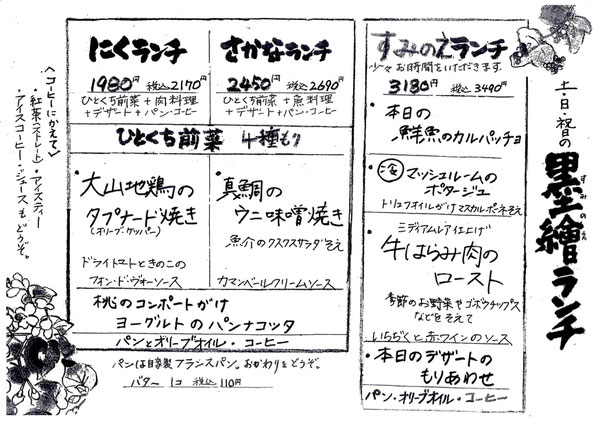 土・日・祝日の
墨繪ランチ
すみのえ
すみのえランチ
少々お時間をいただきます。
3180円 税込3490円
・本日の
鮮魚のカルパッチョ
・マッシュルームの
ポタージュ
トリュフオイルがけマスカルポーネそえ
ミディアムレアに仕上げ
牛はらみ肉の
ロースト
季節のお野菜やゴボウチップス
などをそえて
いちぢくと赤ワインのソース
・本日のデザートの
もりあわせ
パン・オリーブオイル・コーヒー
にくランチ
1980円 税込2170円
ひとくち前菜+肉料理
+デザート+パン・コーヒー
さかなランチ
2450円 税込2690円
ひとくち前菜+魚料理
+デザート+パン・コーヒー
ひとくち前菜 4種もり
・大山地鶏の
タプナード焼き
(オリーブ・ケッパー)
ドライトマトときのこの
フォン・ド・ヴォーソース
・真鯛の
ウニ味噌焼き
魚介のクスクスサラダそえ
カマンベールクリームソース
桃のコンポートがけ
ヨーグルトのパンナコッタ
パンとオリーブオイル・コーヒー
パンは自家製フランスパン。おかわりをどうぞ。
バター 1コ 税込110円
〈コーヒーにかえて〉
・紅茶(ストレート)・アイスティー
・アイスコーヒー・ジュースもどうぞ。